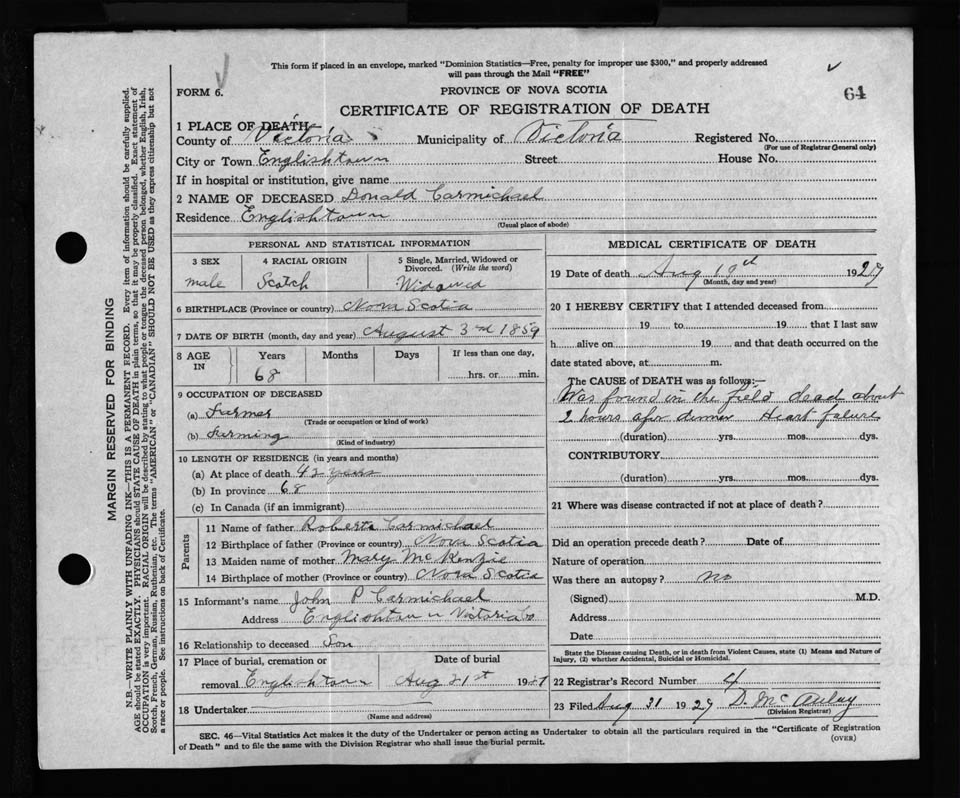 This form if placed in an envelope, marked "Dominion Statistics—Free, penalty for improper use $300," and properly addressed
will pass through the Mail "FREE"
FORM 6.
PROVINCE OF NOVA SCOTIA
64
CERTIFICATE OF REGISTRATION OF DEATH
1 PLACE OF DEATH
County of Victoria Municipality of Victoria Registered No.
(For use of Registrar General only)
City or Town Englishtown Street House No.
If in hospital or institution, give name
2 NAME OF DECEASED Donald Carmichael
Residence Englishtown
(Usual place of abode)
PERSONAL AND STATISTICAL INFORMATION
3 SEX 4 RACIAL ORIGIN 5 Single, Married, Widowed or
Divorced. (Write the word)
male Scotch Widowed
6 BIRTHPLACE (Province or country) Nova Scotia
7 DATE OF BIRTH (month, day and year) August 3rd 1859
8 AGE IN Years Months Days If less than one day,
68 hrs. or min.
9 OCCUPATION OF DECEASED
(a) Farmer
(Trade or occupation or kind of work)
(b) Farming
(Kind of industry)
10 LENGTH OF RESIDENCE (in years and months)
(a) At place of death 42 years
(b) In province 68
(c) In Canada (if an immigrant)
Parents
11 Name of father Roberts Carmichael
12 Birthplace of father (Province or country) Nova Scotia
13 Maiden name of mother Mary McKenzie
14 Birthplace of mother (Province or country) Nova Scotia
15 Informant's name John P Carmichael
Address Englishtown Victoria Co
16 Relationship to deceased Son
17 Place of burial, cremation or Date of burial
removal Englishtown Aug 21st 1927
18 Undertaker
(Name and address)
MEDICAL CERTIFICATE OF DEATH
19 Date of death Aug 19th 1927
(Month, day and year)
20 I HEREBY CERTIFY that I attended deceased from
19 to 19 that I last saw
h alive on 19 and that death occurred on the
date stated above, at m.
The CAUSE of DEATH was as follows:—
Was found in the field dead about
2 hours afer dinner Heart failure
(duration) yrs. mos. dys.
CONTRIBUTORY
(duration) yrs. mos. dys.
21 Where was disease contracted if not at place of death?
Did an operation precede death? Date of
Nature of operation
Was there an autopsy? no
(Signed) M.D.
Address
Date
State the Disease causing Death, or in death from Violent Causes, state (1) Means and Nature of
Injury, (2) whether Accidental, Suicidal or Homicidal.
22 Registrar's Record Number 4
23 Filed Aug 31 1927 D. McAulay
(Division Registrar)
SEC. 46—Vital Statistics Act makes it the duty of the Undertaker or person acting as Undertaker to obtain all the particulars required in the "Certificate of Registration
of Death" and to file the same with the Division Registrar who shall issue the burial permit.
(OVER)
MARGIN RESERVED FOR BINDING
N.B.—WRITE PLAINLY WITH UNFADING INK—THIS IS A PERMANENT RECORD. Every item of information should be carefully supplied.
AGE should be stated EXACTLY. PHYSICIANS should STATE CAUSE OF DEATH in plain terms, so that it may be properly classified. Exact statement of
OCCUPATION is very important. RACIAL ORIGIN will be described by stating to what people or tongue the deceased person belonged, whether English, Irish,
Scotch, French, German, Russian, Ruthenian, etc. The terms "AMERICAN" or "CANADIAN" SHOULD NOT BE USED as they express citizenship but not
a race or people. See instructions on back of Certificate.